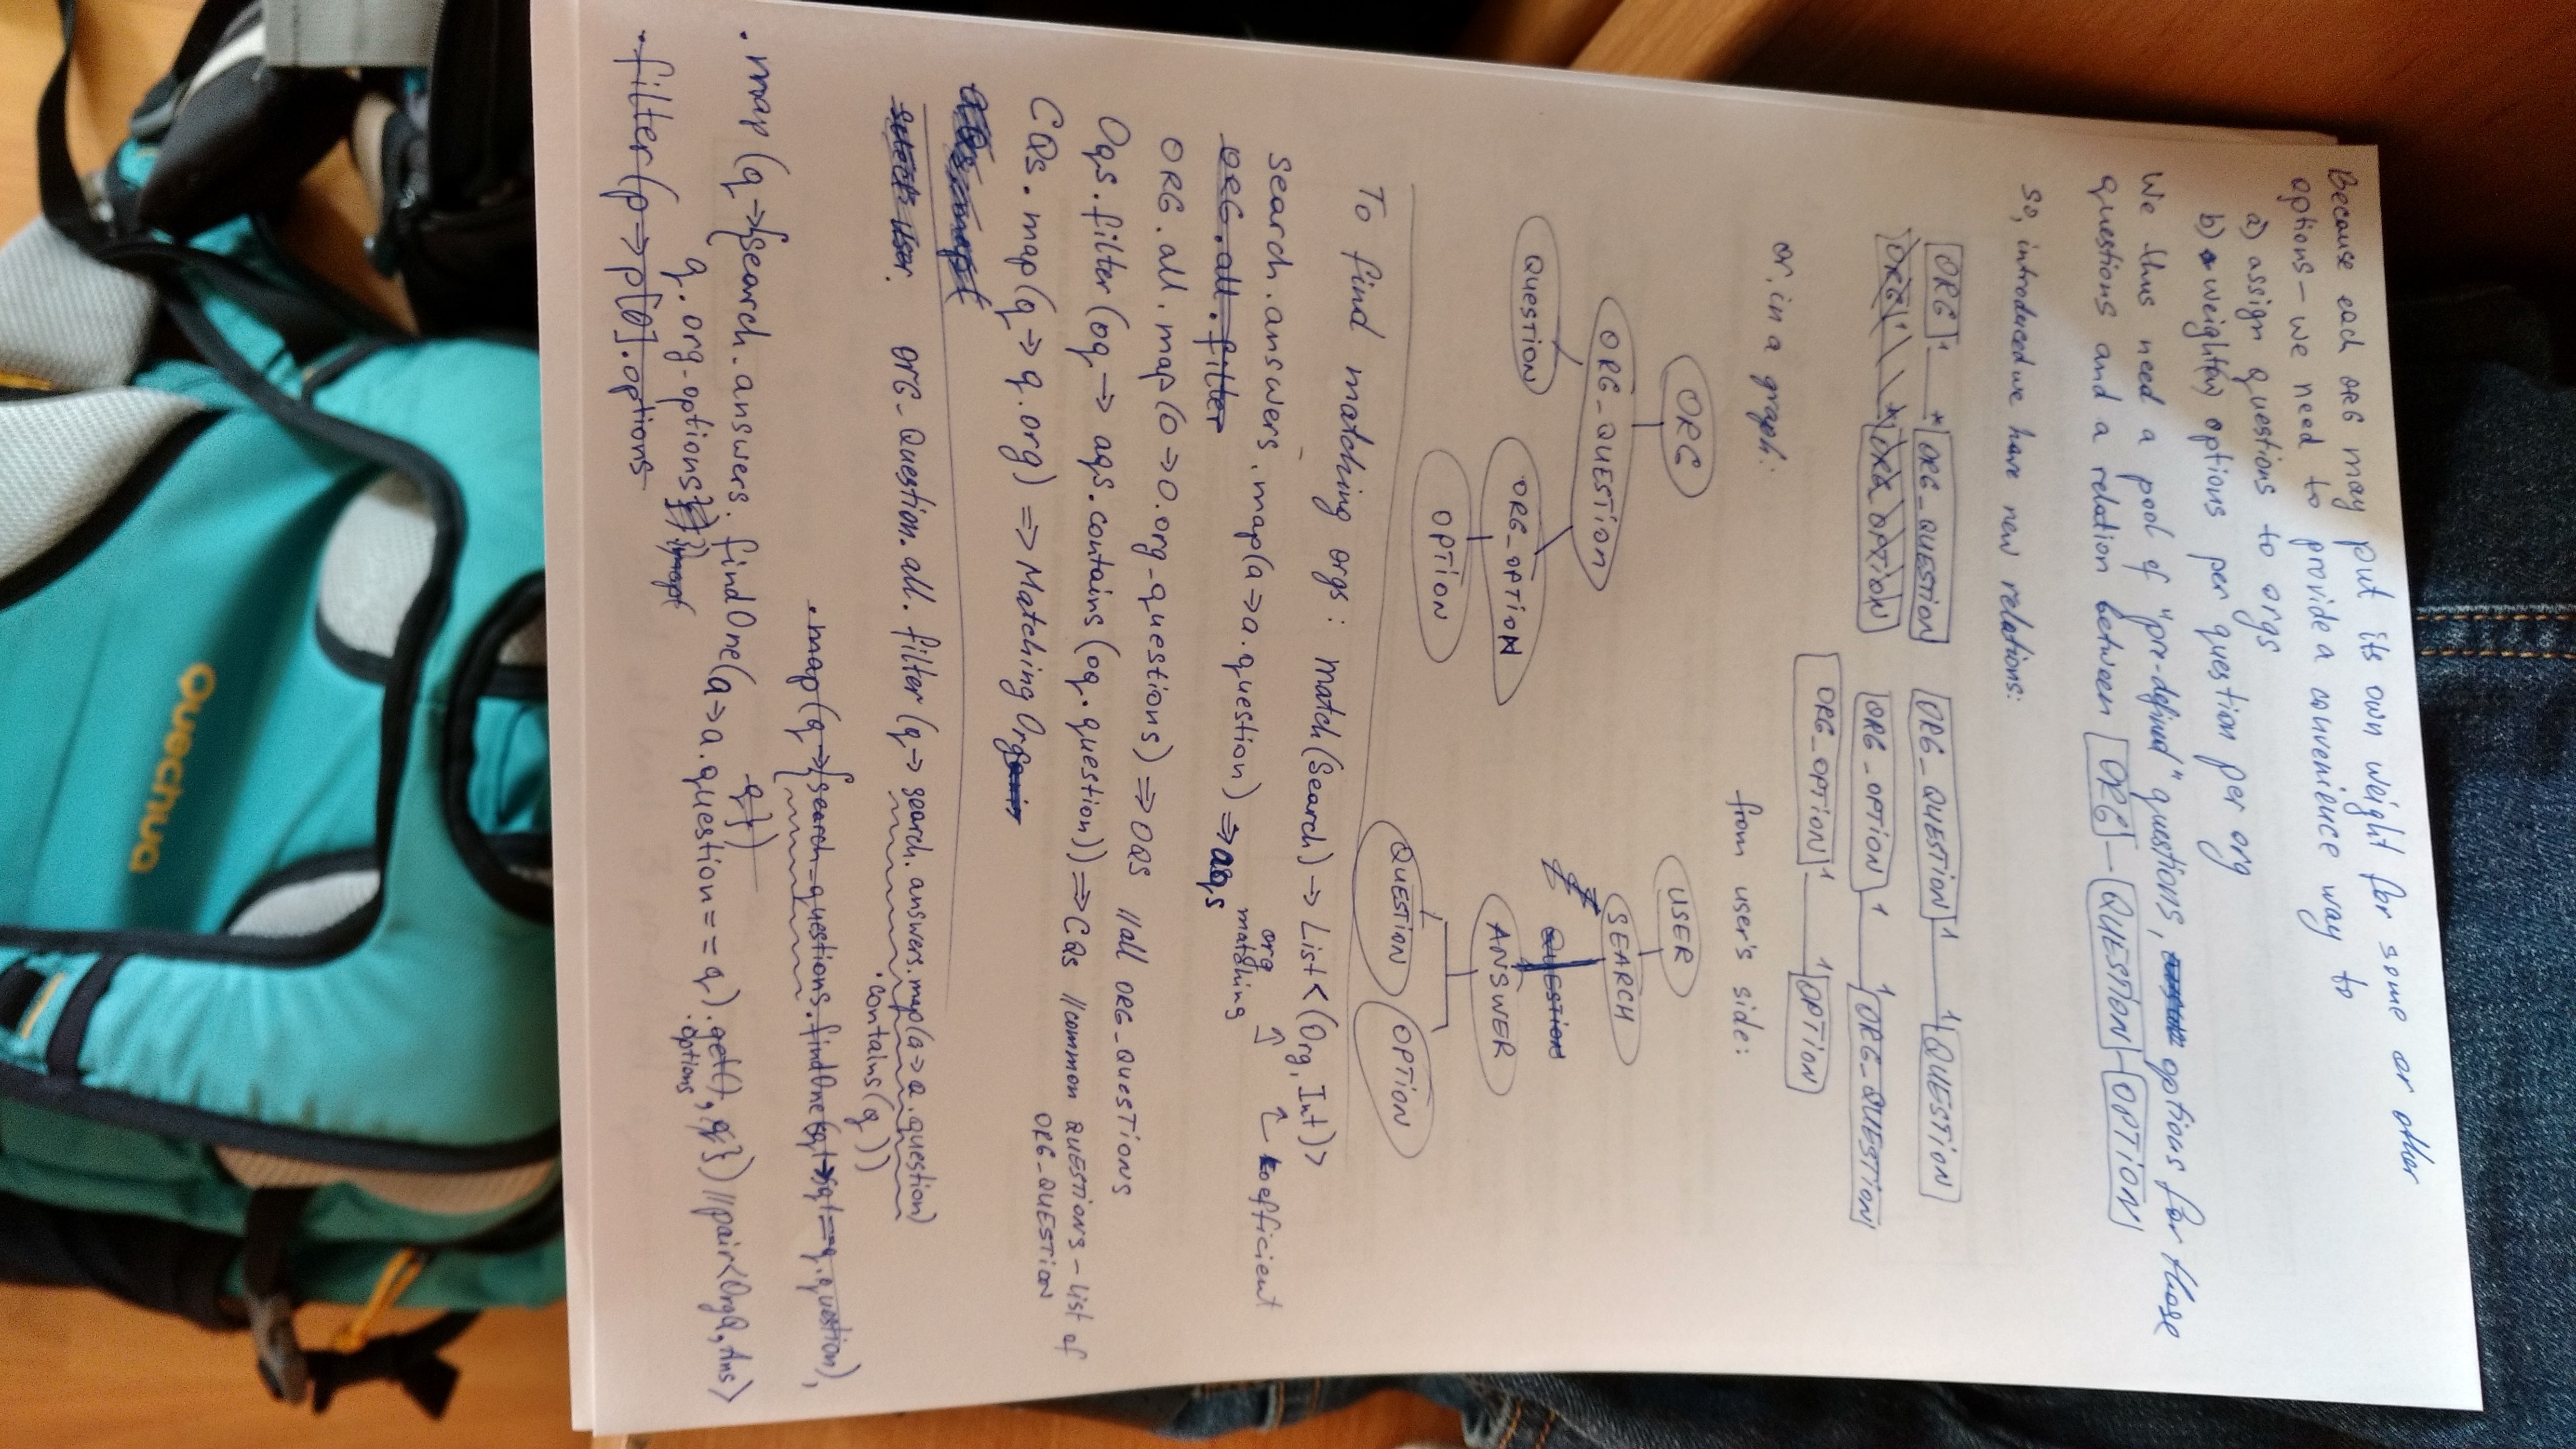 Because each ORG may put its own weight for some or other
options – we need to provide a convenience way to
a) assign questions to orgs
b) weight(w) options per question per org
We thus need a pool of "pre-defined" questions, options for those
questions and a relation between ORG – QUESTION – OPTION
so, introduced we have new relations:
ORG 1 — * ORG_QUESTION
ORG_QUESTION 1 — 1 QUESTION
ORG 1 * ORG OPTION
ORG_OPTION 1 — 1 ORG_QUESTION
ORG_OPTION 1 — 1 OPTION
or, in a graph:
from user's side:
ORG
ORG_QUESTION
QUESTION
ORG_OPTION
OPTION
USER
SEARCH
QUESTION
ANSWER
QUESTION
OPTION
To find matching orgs: match(Search) → List<(Org, Int)>
org matching
koefficient
Search.answers.map(a ⇒ a.question) ⇒ aqs
ORG.all.filter
ORG.all.map(o ⇒ o.org_questions) ⇒ OQS //all ORG_QUESTIONS
Oqs.filter(oq ⇒ aqs.contains(oq.question)) ⇒ CQs //common QUESTIONS – list of
ORG_QUESTION
CQs.map(q ⇒ q.org) ⇒ Matching Org
select user.
ORG_Question.all.filter(q ⇒ search.answers.map(a ⇒ a.question)
.contains(q))
.map(q ⇒ {search_questions.findOne(q1 ⇒ q1 == q.question),
q})
.map(q ⇒ {search.answers.findOne(a ⇒ a.question == q).get(), q}) //pair<OrgQ, Ans>
.options
q.org-options
.filter(p ⇒ p[0].options
Quechua